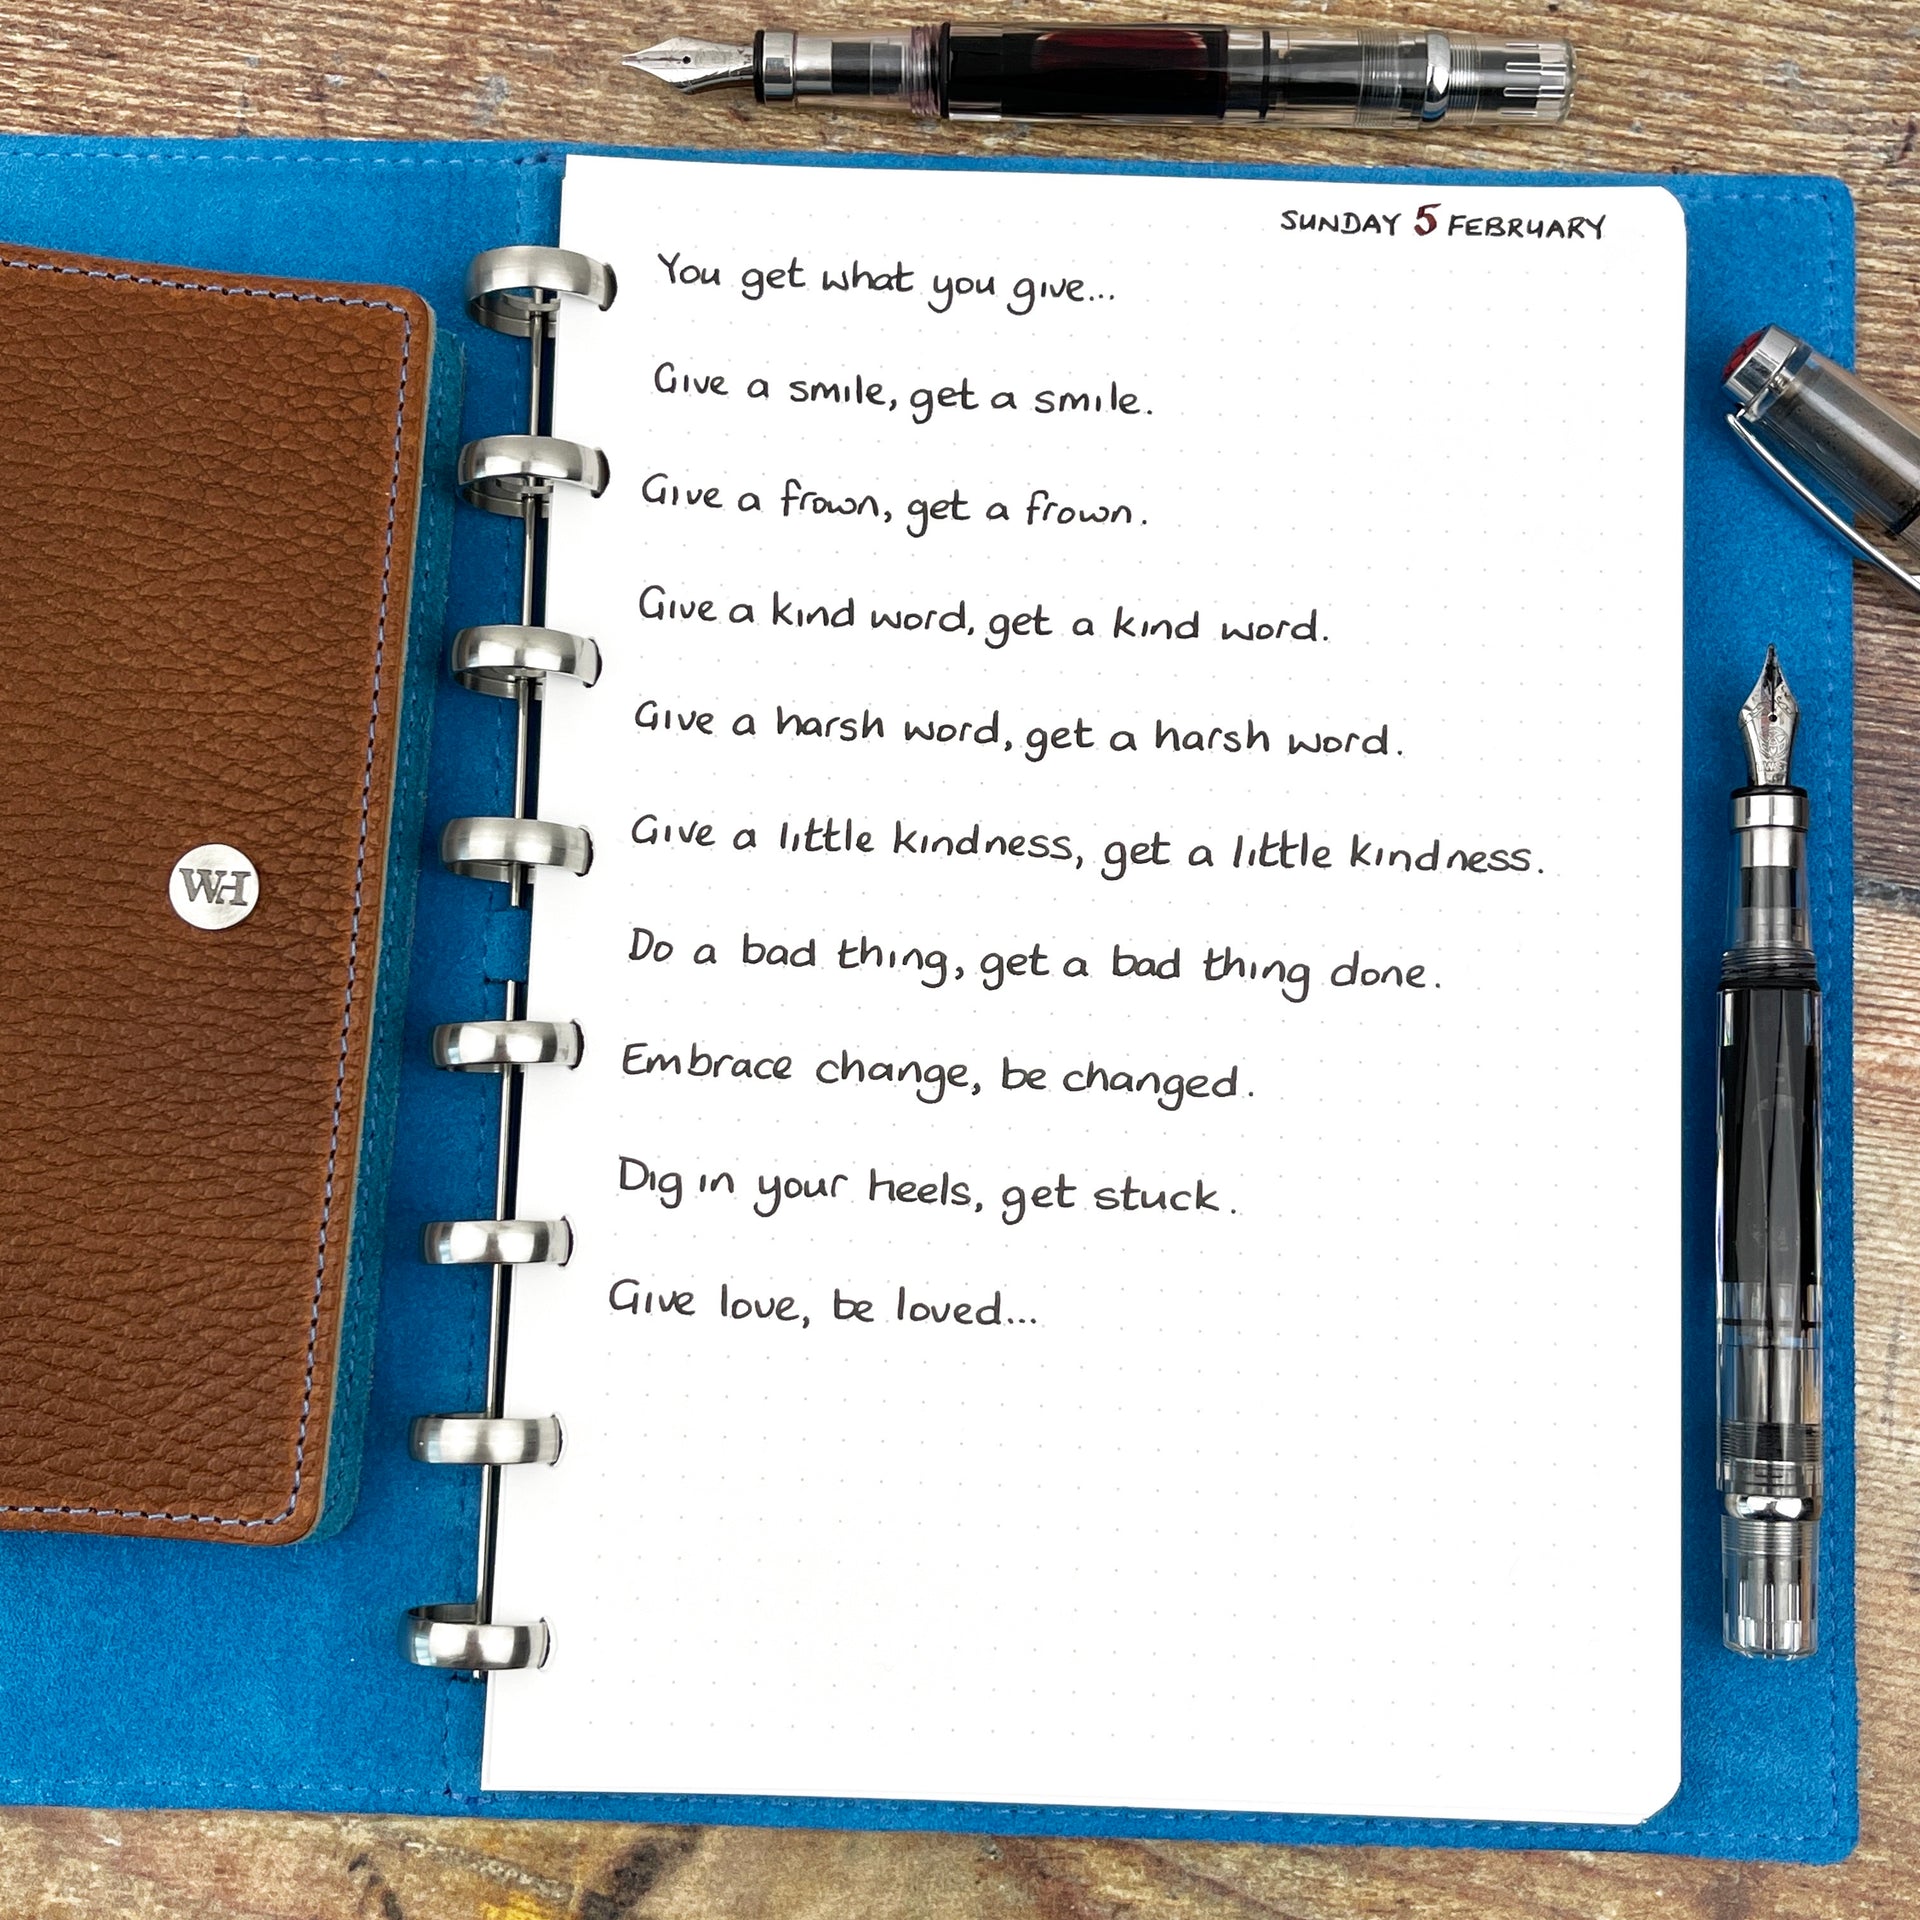 SUNDAY 5 FEBRUARY
You get what you give...
Give a smile, get a smile.
Give a frown, get a frown.
Give a kind word, get a kind word.
Give a harsh word, get a harsh word.
Give a little kindness, get a little kindness.
Do a bad thing, get a bad thing done.
Embrace change, be changed.
Dig in your heels, get stuck.
Give love, be loved...
WH